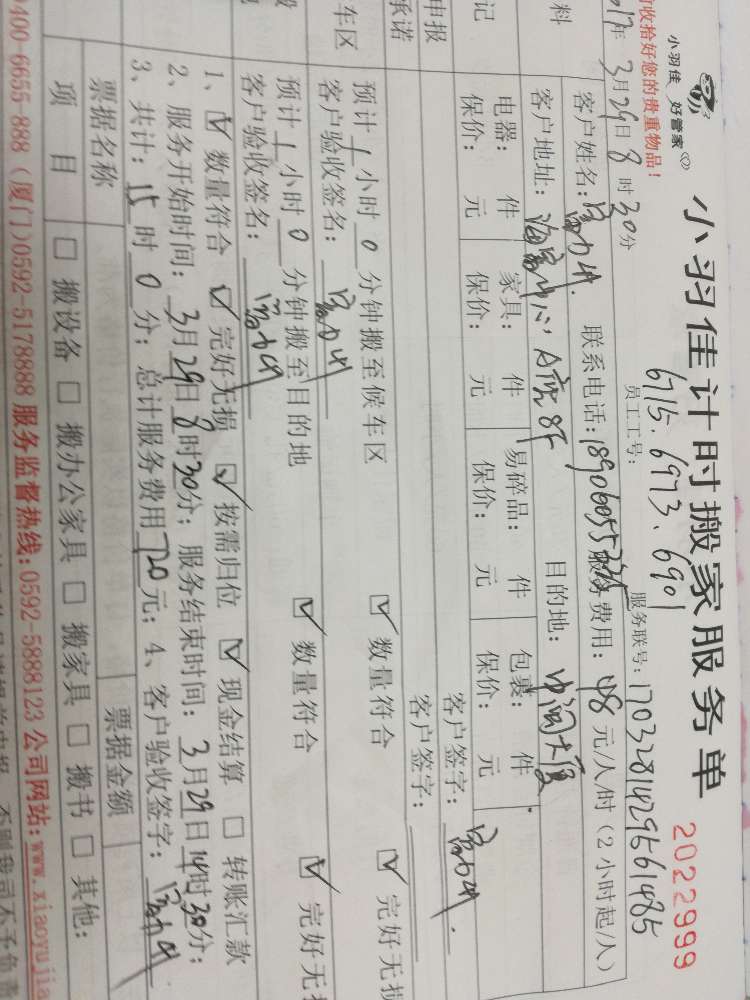 小羽佳 好管家
小羽佳计时搬家服务单
2022999
前收拾好您的贵重物品！
6715、6973、6901
员工工号：
服务联号：170328142956 1485
017年3月29日8时30分
料
客户姓名：
联系电话：
服务费用：48元/人/时（2小时起/人）
客户地址：海富中心A座8F
目的地：中闽大厦
记
电器：件 家具：件 易碎品：件 包裹：件
保价：元 保价：元 保价：元 保价：元
申报
客户签字：
承诺
客户签字：
车区
预计1小时0分钟搬至候车区
☑数量符合 ☑完好无损
客户验收签名：
预计1小时0分钟搬至目的地
☑数量符合 ☑完好无损
客户验收签名：
1、☑数量符合 ☑完好无损 ☑按需归位 ☑现金结算 □转账汇款
2、服务开始时间：3月29日8时30分；服务结束时间：3月29日14时30分；
3、共计：15时0分；总计服务费用720元；4、客户验收签字：
票据名称
票据金额
项目
□搬设备 □搬办公家具 □搬家具 □搬书 □其他：
0400-6655 888（厦门）0592-5178888 服务监督热线：0592-5888123 公司网站：www.xiaoyujia